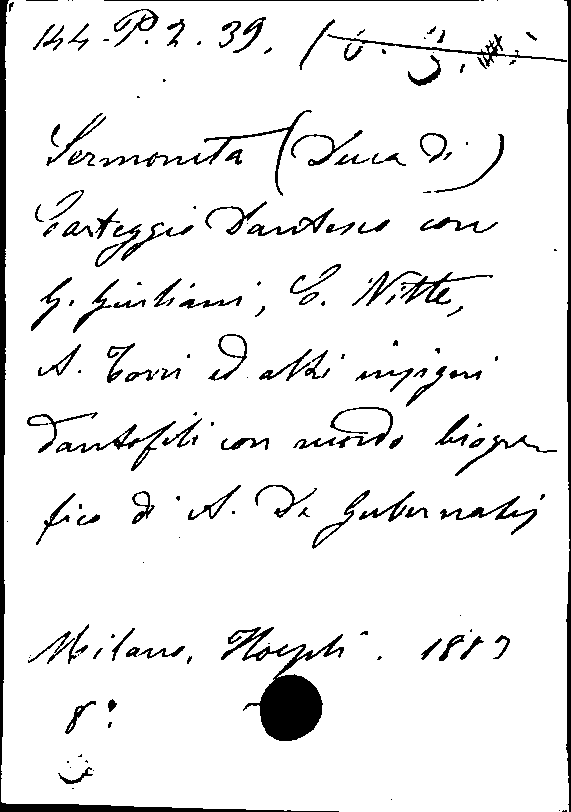 144. P. 2. 39.
Sermoneta (Duca di)
Carteggio Dantesco con
G. Giuliani, C. Witte,
A. Torri ed altri insigni
Dantofili con ricordo biogra-
fico di A. De Gubernatis
Milano, Hoepli. 1883
8º